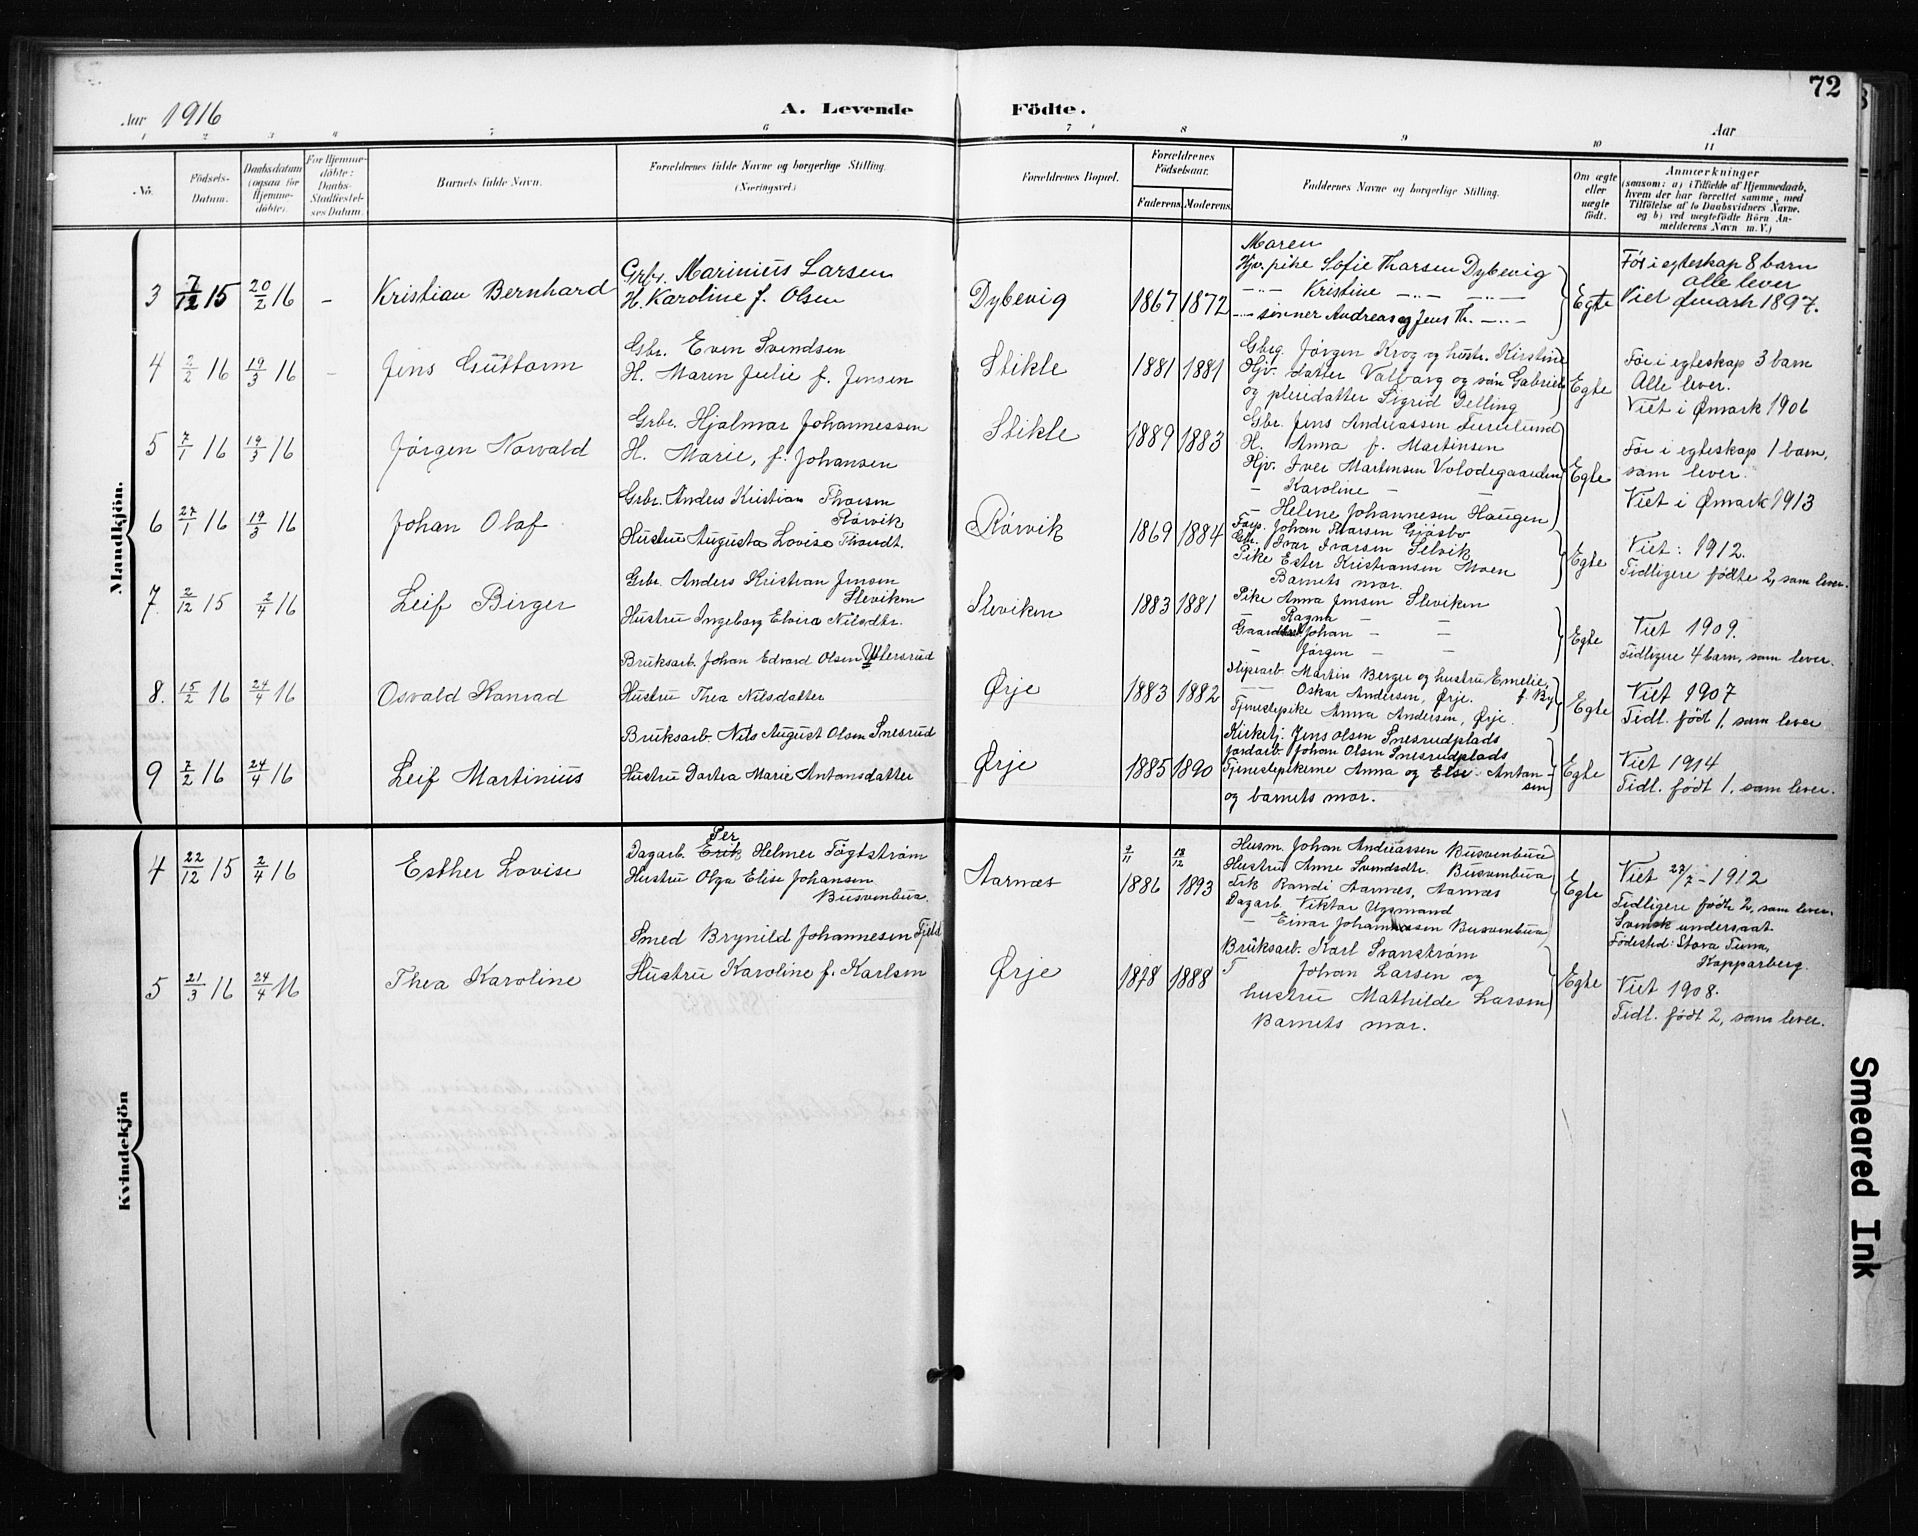 72
Aar 1916
A. Levende Födte.
Aar
1 2 3 4 5 6 7 8 9 10 11
No.
Födsels-Datum.
Daabsdatum (ogsaa for Hjemmedöbte).
For Hjemmedöbte: Daabs-Stadfæstelses Datum.
Barnets fulde Navn.
Forældrenes fulde Navne og borgerlige Stilling. (Næringsvei.)
Forældrenes Bopæl.
Forældrenes Födselsaar.
Faderens. Moderens.
Faddernes Navne og borgerlige Stilling.
Om ægte eller uægte födt.
Anmærkninger
(saasom: a) i Tilfælde af Hjemmedaab, hvem der har forrettet samme, med Tilföielse af to Daabsvidners Navne, og b) ved uægtefödte Börn Anmelderens Navn m. V.)
Mandkjön.
3 7/12 15 20/2 16 - Kristian Bernhard
Grbr. Marinius Larsen
H. Karoline f. Olsen
Dybevig 1867 1872
Maren
Hjv. pike Sofie Tharsen Dybevig
-"- Kristine -"- -"-
-"- sønner Andreas og Jens Th. -"-
Egte
Før i egteskap 8 barn
alle lever
Viet Ømark 1897.
4 2/2 16 19/3 16 - Jens Guttorm
Gbr. Even Svendsen
H. Maren Julie f. Jensen
Stikle 1881 1881
Gbrg. Jørgen Krog og hustr. Kirstine
Hjv. datter Valborg og søn Gabriel
og pleiedatter Sigrid Delling
Egte
Før i egteskap 3 barn
Alle lever.
Viet i Ømark 1906
5 7/1 16 19/3 16 Jørgen Norvald
Grbr. Hjalmar Johannessen
H. Marie, f. Johansen
Stikle 1889 1883
Gbr. Jens Andreassen Furulund
H. Anna f. Martinsen
Hjv. Iver Martinsen Volodegaarden
- Karoline -
Helene Johannesen Haugen
Egte
Før i egteskap 1 barn,
som lever.
Viet i Ømark 1913
6 27/1 16 19/3 16 Johan Olaf
Grbr. Anders Kristian Thorsen
Rørvik
Hustru Augusta Lovise
Rørvik 1869 1884
Johan Thorsen Gjøsbo
Gbr. Ivar Ivarsen Selvik
Pike Ester Kristiansen Moen
Barnets mor.
Egte
Viet: 1912.
Tidligere fødte 2, som lever.
7. 2/12 15 2/4 16 Leif Birger
Grbr. Anders Kristian Jensen
Sleviken
Hustru Ingeborg Elvira Nilsdtr.
Sleviken 1883 1881
Pike Anna Jensen Sleviken
- Ragna - -
Johan - -
- Jørgen - -
Egte
Viet 1909.
Tidligere 4 barn, som lever.
8. 15/2 16 24/4 16 Osvald Konrad
Bruksarb. Johan Edvard Olsen Ottersrud
Hustru Thea Nilsdatter
Ørje 1883 1882
Slipearb. Martin Berger og hustru Emelie,
f. By
-"- Oskar Andersen, Ørje.
Tjenestepike Anna Andersen, Ørje.
Egte
Viet 1907
Tidl. født 1, som lever.
9 7/2 16 24/4 16 Leif Martinius
Bruksarb. Nils August Olsen Snesrud
Hustru Dortea Marie Antonsdatter
Ørje 1885 1890
Kirketj. Jens Olsen Snesrudplads
Jordarb. Johan Olsen Snesrudplads
Tjenestepikerne Anna og Else Antonsen
og barnets mor.
Egte
Viet 1914
Tidl. født 1, som lever.
Kvindekjön
4 22/12 15 2/4 16 Esther Lovise
Per
Dagarb. Erik Helmer Fogtstrøm
Hustru Olga Elise Johansen
Busvenbua.
Aarnæs 9/11 1886 13/12 1893
Husm. Johan Andreassen Busvenbua
Hustru Anne Svendsdtr. Busvenbua
Frk Randi Aarnæs, Aarnæs
Dagarb. Viktor
- Einar Johannessen Busvenbua
Egte
Viet 27/7 - 1912
Tidligere fødte 2, som lever.
Svensk undersaat.
Fødested: Stora Tuna,
Kopparberg.
5 21/3 16 24/4 16 Thea Karoline
Smed Brynild Johannesen Fjeld
Hustru Karoline f. Karlsen
Ørje 1878 1888
Bruksarb. Karl Svanstrøm
Johan Larsen og
hustru Mathilde Larsen
Barnets mor.
Egte
Viet 1908.
Tidl. født 2, som lever.
Smeared Ink